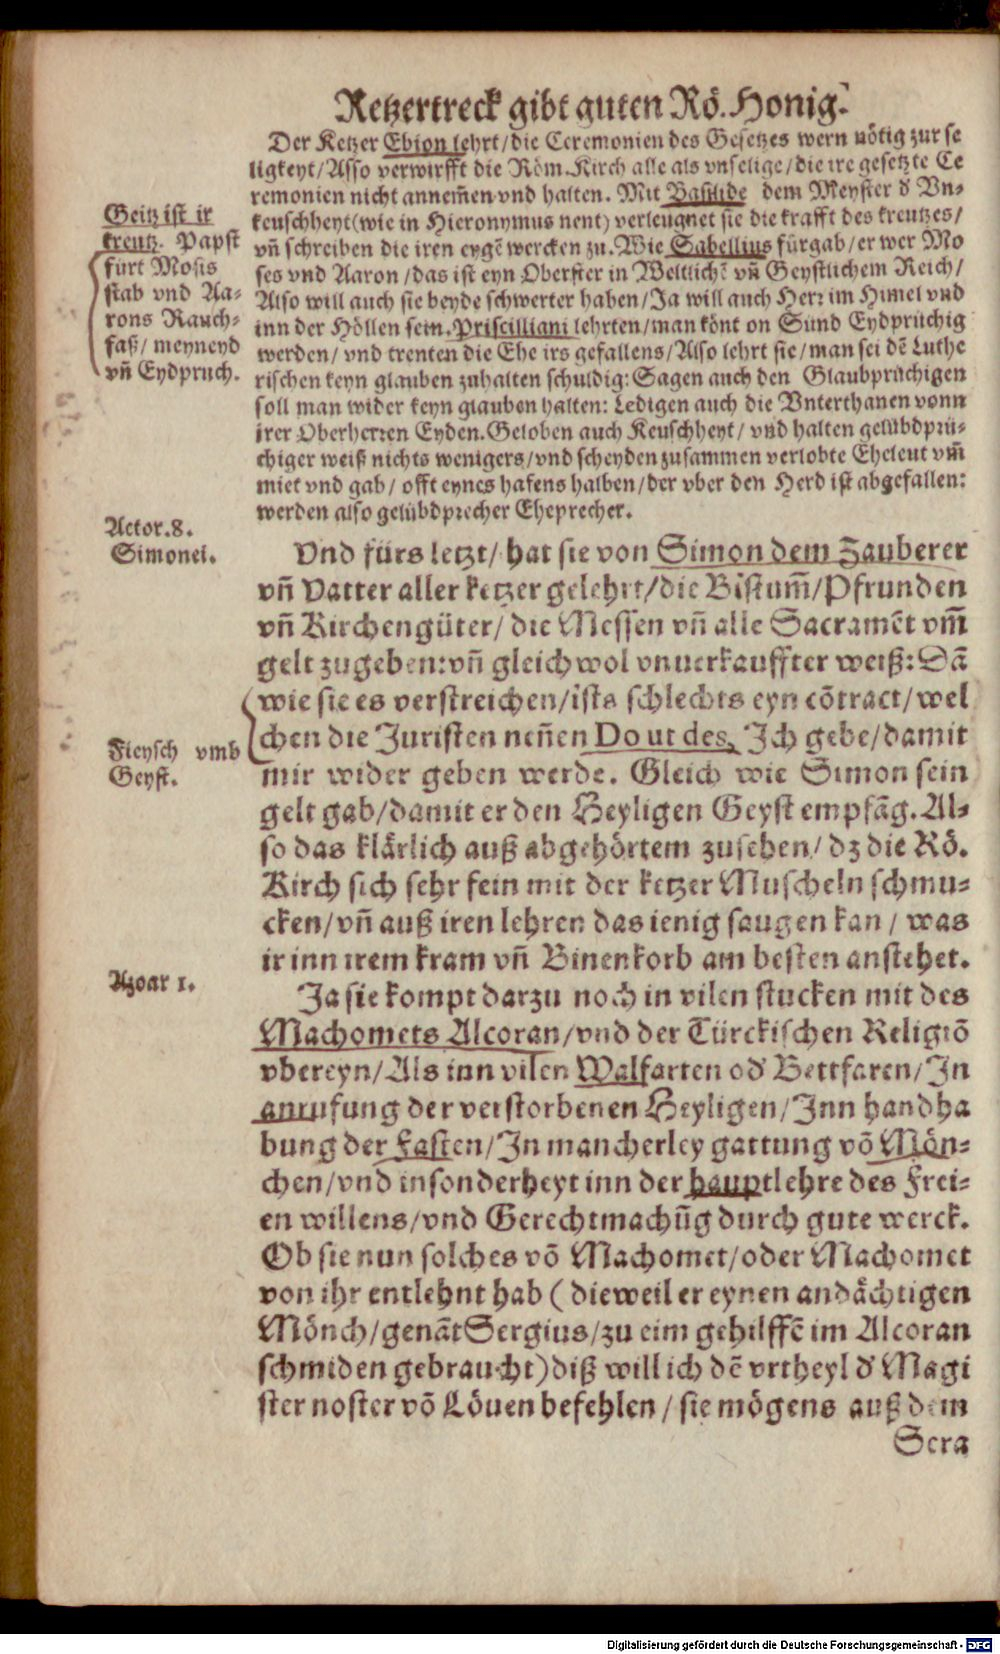 Ketzertreck gibt guten Rö. Honig.
Der Ketzer Ebion lehrt/die Ceremonien des Gesetzes wern nötig zur se
ligkeyt/Asso verwirfft die Röm. Kirch alle als vnselige/die ire gesetzte Ce
remonien nicht annem̃en vnd halten. Mit Basilide dem Meyster d̕ Vn⸗
keuschheyt(wie in Hieronymus nent) verleugnet sie die krafft des kreutzes/
vñ schreiben die iren eygẽ wercken zu. Wie Sabellius fürgab/er wer Mo
ses vnd Aaron/das ist eyn Oberster in Weltlichẽ vñ Geystlichem Reich/
Also will auch sie beyde schwerter haben/Ja will auch Herr im Himel vnd
inn der Höllen sein. Priscilliani lehrten/man könt on Sünd Eydprüchig
werden/vnd trenten die Ehe irs gefallens/Also lehrt sie/man sei dẽ Luthe
rischen keyn glauben zuhalten schuldig: Sagen auch den Glaubprüchigen
soll man wider keyn glauben halten: Ledigen auch die Vnterthanen vonn
irer Oberherren Eyden. Geloben auch Keuschheyt/vnd halten gelübdprü⸗
chiger weiß nichts wenigers/vnd scheyden zusammen verlobte Eheleut vm̃
miet vnd gab/offt eynes hafens halben/der vber den Herd ist abgefallen:
werden also gelübdprecher Eheprecher.
Geitz ist ir
kreutz. Papst
fürt Mosis
stab vnd Aa⸗
rons Rauch⸗
faß/meyneyd
vñ Eydpruch.
Actor.8.
Simonei.
Vnd fürs letzt/hat sie von Simon dem Zauberer
vñ Vatter aller ketzer gelehrt/die Bistum̃/Pfrunden
vñ Kirchengüter/die Messen vñ alle Sacramẽt vm̃
gelt zugeben: vñ gleich wol vnuerkauffter weiß: Dã
wie sie es verstreichen/ists schlechts eyn cõtract/wel
chen die Juristen neñen Do ut des, Ich gebe/damit
mir wider geben werde. Gleich wie Simon sein
gelt gab/damit er den Heyligen Geyst empfãg. Al⸗
so das klärlich auß abgehörtem zusehen/dz die Rö.
Kirch sich sehr fein mit der ketzer Muscheln schmu⸗
cken/vñ auß iren lehren das ienig saugen kan/was
ir inn irem kram vñ Binenkorb am besten anstehet.
Fleysch vmb
Geyst.
Azoar 1.
Ja sie kompt darzu noch in vilen stucken mit des
Machomets Alcoran/vnd der Türckischen Religiõ
vbereyn/Als inn vilen Walfarten od̕ Bettfaren/In
anrufung der verstorbenen Heyligen/Inn handha
bung der Fasten/In mancherley gattung võ Mön⸗
chen/vnd insonderheyt inn der hauptlehre des Frei⸗
en willens/vnd Gerechtmachũg durch gute werck.
Ob sie nun solches võ Machomet/oder Machomet
von ihr entlehnt hab (dieweil er eynen andächtigen
Mönch/genãt Sergius/zu eim gehilffẽ im Alcoran
schmiden gebraucht) diß will ich dẽ vrtheyl d̕ Magi
ster noster võ Löuen befehlen/sie mögens auß dem
Sera
Digitalisierung gefördert durch die Deutsche Forschungsgemeinschaft - DFG